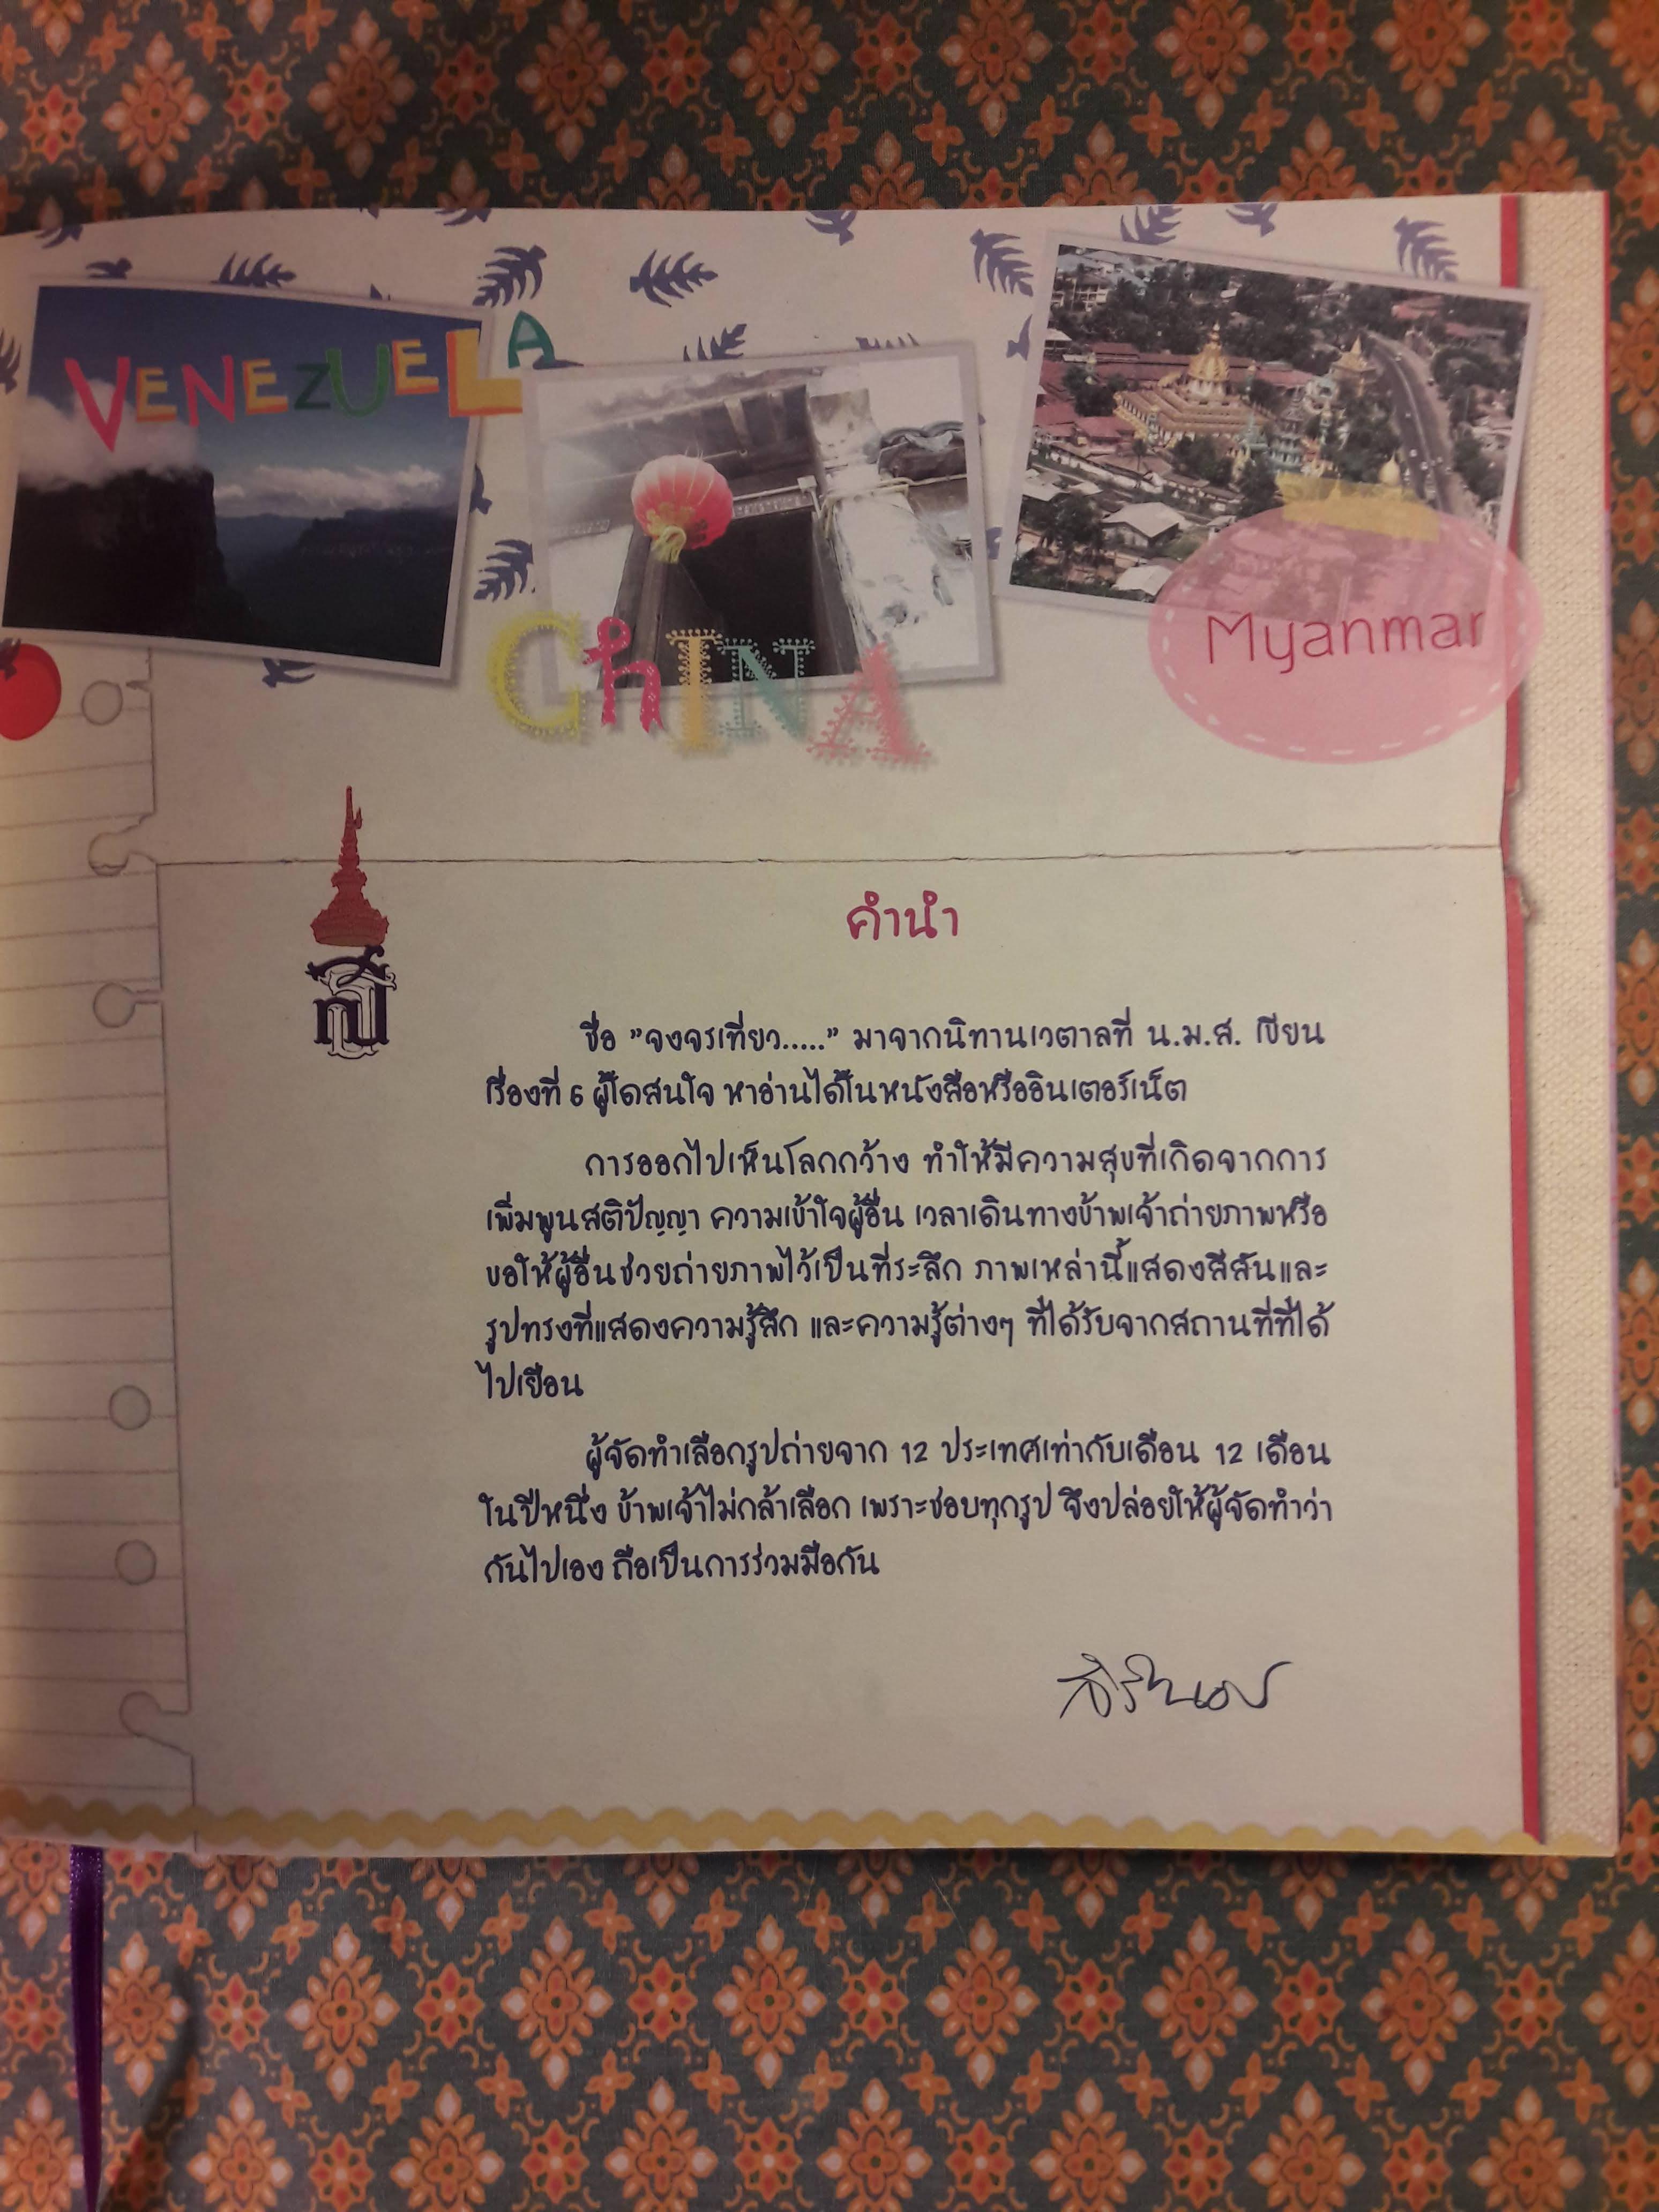 VENEZUELA
ChINA
Myanmar
คำนำ
ชื่อ "จงจรเที่ยว....." มาจากนิทานเวตาลที่ น.ม.ส. เขียน
เรื่องที่ 6 ผู้ใดสนใจ หาอ่านได้ในหนังสือหรืออินเตอร์เน็ต
การออกไปเห็นโลกกว้าง ทำให้มีความสุขที่เกิดจากการ
เพิ่มพูนสติปัญญา ความเข้าใจผู้อื่น เวลาเดินทางข้าพเจ้าถ่ายภาพหรือ
ขอให้ผู้อื่นช่วยถ่ายภาพไว้เป็นที่ระลึก ภาพเหล่านี้แสดงสีสันและ
รูปทรงที่แสดงความรู้สึก และความรู้ต่างๆ ที่ได้รับจากสถานที่ที่ได้
ไปเยือน
ผู้จัดทำเลือกรูปถ่ายจาก 12 ประเทศเท่ากับเดือน 12 เดือน
ในปีหนึ่ง ข้าพเจ้าไม่กล้าเลือก เพราะชอบทุกรูป จึงปล่อยให้ผู้จัดทำว่า
กันไปเอง ถือเป็นการร่วมมือกัน